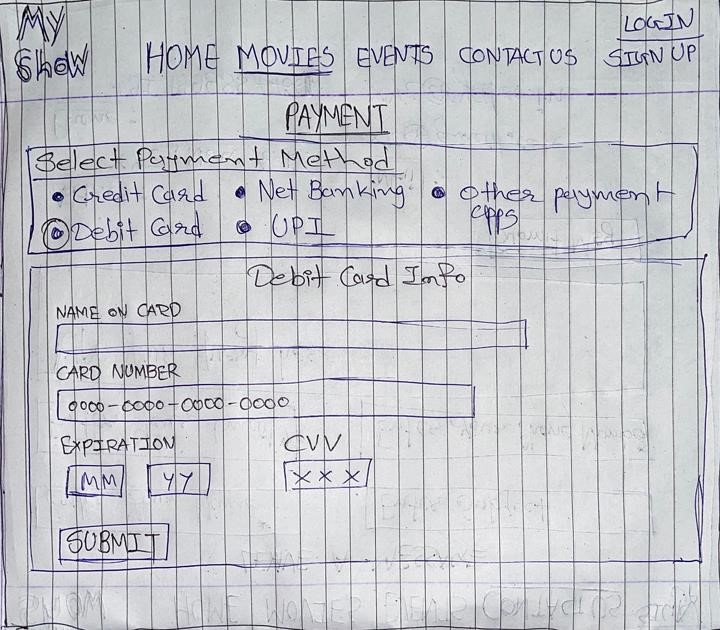 My Show
HOME MOVIES EVENTS CONTACT US
LOGIN
SIGN UP
PAYMENT
Select Payment Method
• Credit Card • Net Banking • Other payment apps
• Debit Card • UPI
Debit Card Info
NAME ON CARD
CARD NUMBER
0000-0000-0000-0000
EXPIRATION CVV
MM YY XXX
SUBMIT